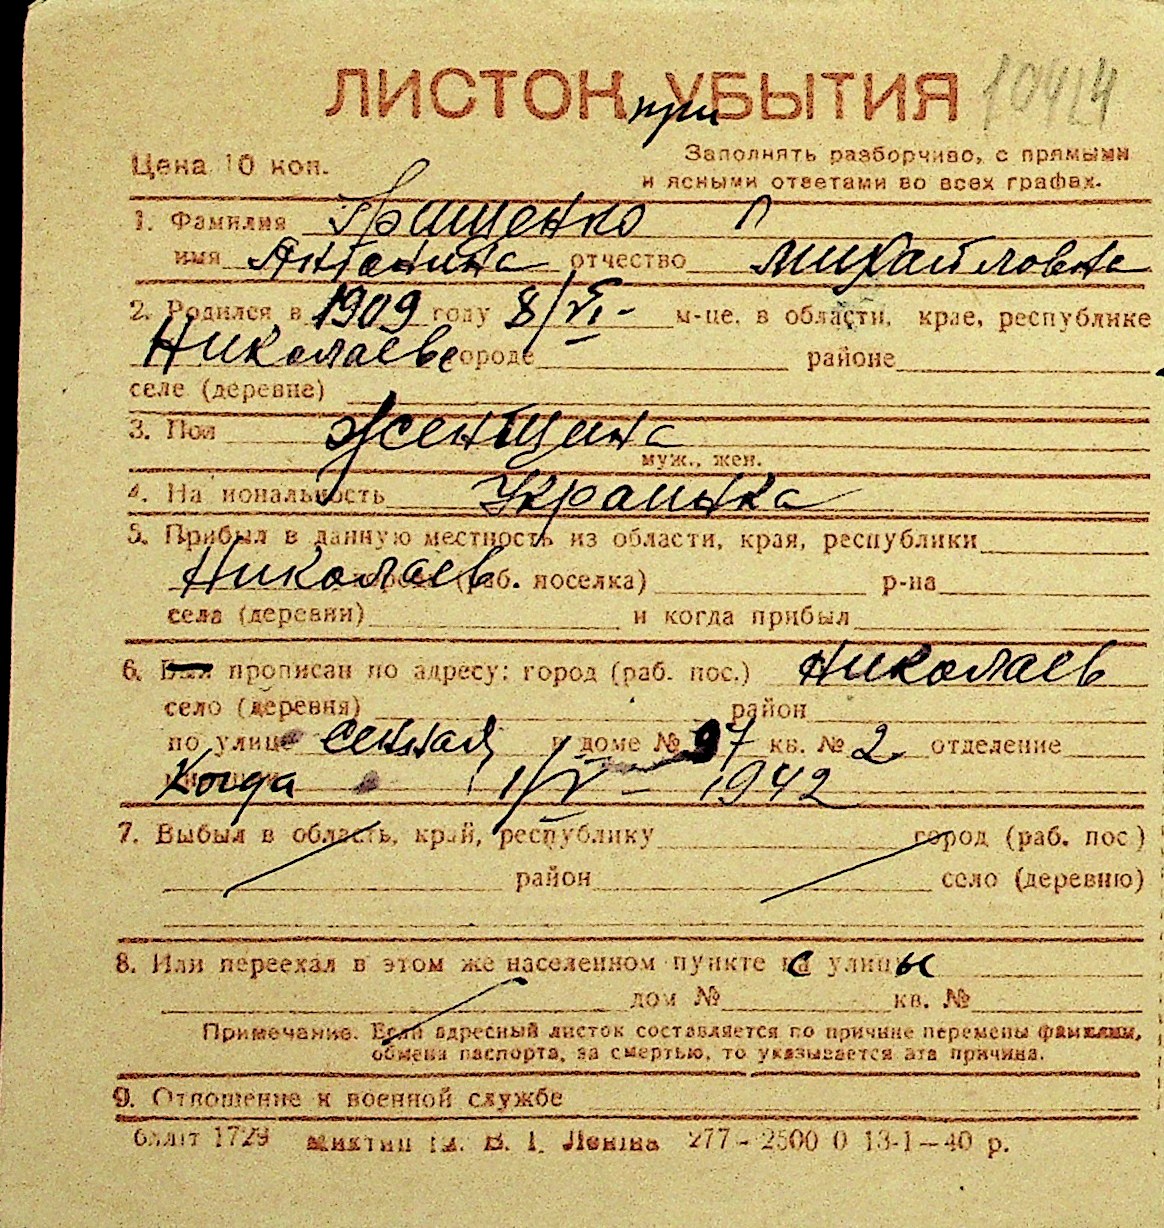 ЛИСТОК при УБЫТИЯ 10414
Цена 10 коп. Заполнять разборчиво, с прямыми
и ясными ответами во всех графах.
1. Фамилия Грищенко
имя Антонина отчество Михайловна
2. Родился в 1909 году 8/VI- м-це, в области, крае, республике
Николаеве городе районе
селе (деревне)
3. Пол женщина
муж., жен.
4. Национальность Украинка
5. Прибыл в данную местность из области, края, республики
Николаев города (раб. поселка) р-на
села (деревни) и когда прибыл
6. Был прописан по адресу: город (раб. пос.) Николаев
село (деревня) район
по улице Сенная в доме № 97 кв. № 2 отделение
Когда 1/V - 1942
7. Выбыл в область, край, республику город (раб. пос.)
район село (деревню)
8. Или переехал в этом же населенном пункте с улицы
дом № кв. №
Примечание. Если адресный листок составляется по причине перемены фамилии,
обмена паспорта, за смертью, то указывается эта причина.
9. Отношение к военной службе
1729 В. І. Леніна 277-2500 0 13-1-40 р.